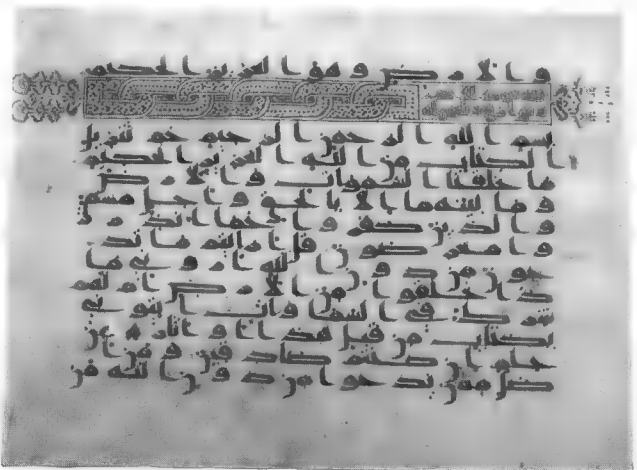 والارض وهو العزيز الحكيم
بسم الله الرحمن الرحيم حم تنزيل
الكتب من الله العزيز الحكيم
ما خلقنا السموات والارض
وما بينهما الا بالحق واجل مسمى
والذين كفروا عما انذر
وا معرضون قل ارايتم ما تد
عون من دون الله اروني ما
ذا خلقوا من الارض ام لهم
شرك في السموات ايتوني
بكتب من قبل هذا او اثارة من
علم ان كنتم صادقين ومن ا
ضل ممن يدعوا من دون الله من